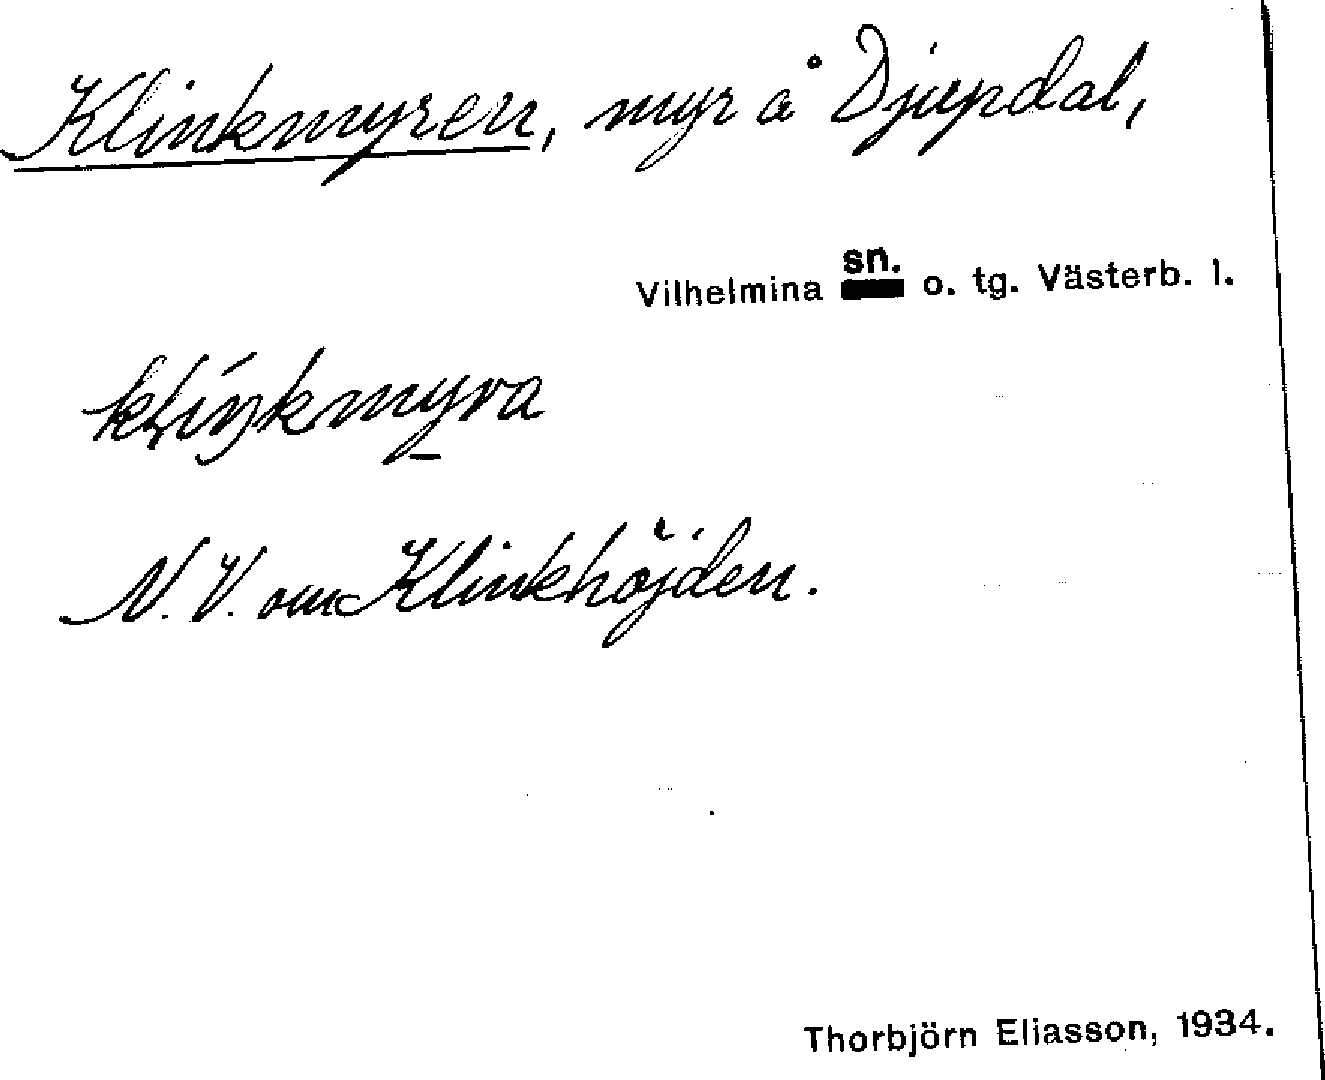 Klinkmyren, myr å Djupdal,
Vilhelmina sn. o. tg. Västerb. l.
kḷíŋkmyra
N.V. om Klinkhöjden.
Thorbjörn Eliasson, 1934.